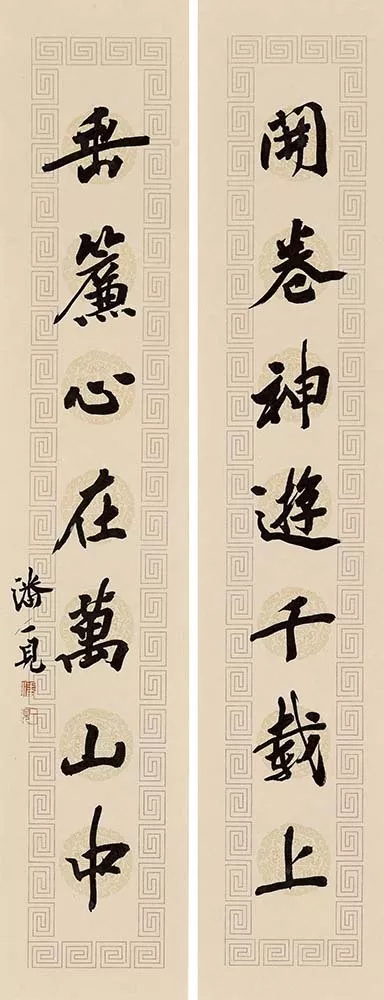 開卷神遊千載上
垂簾心在萬山中
潘一見